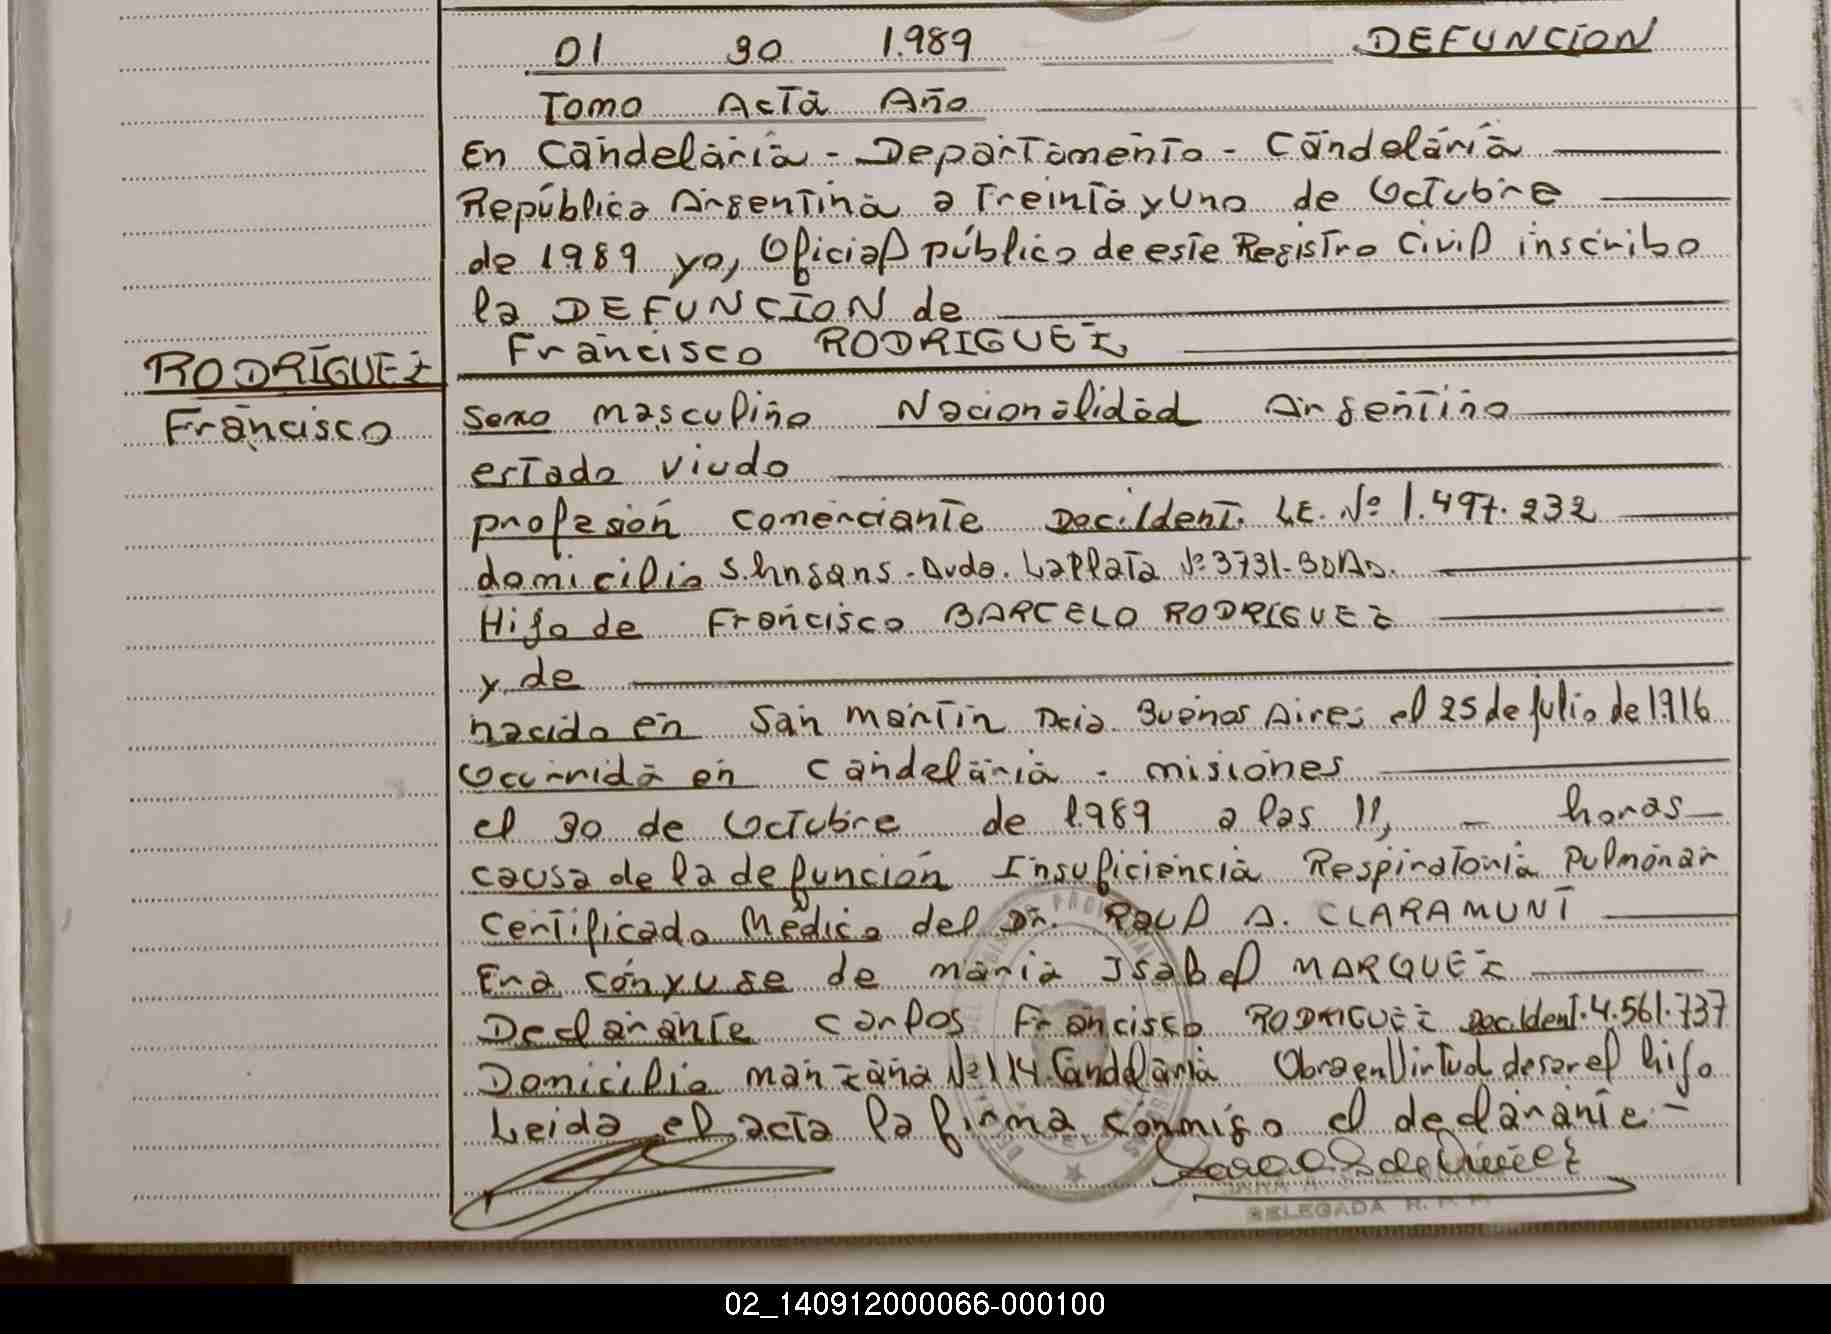 01 30 1.989 DEFUNCION
Tomo Acta Año
En Candelaria - Departamento - Candelaria
República Argentina a Treinta y Uno de Octubre
de 1989 yo, Oficial público de este Registro Civil inscribo
la DEFUNCION de
Francisco RODRIGUEZ
RODRÍGUEZ
Francisco
Sexo masculino Nacionalidad Argentino
estado viudo
profesión comerciante Doc. Ident. L.E. Nº 1.497.232
domicilio Avda. La Plata Nº 3731-
Hijo de Francisco BARCELO RODRIGUEZ
y de
nacido en San Martin Pcia. Buenos Aires el 25 de julio de 1916
Ocurrida en Candelaria - misiones
el 30 de Octubre de 1.989 a las 11, - horas
causa de la defunción Insuficiencia Respiratoria Pulmonar
Certificado Médico del Dr. Raul A. CLARAMUNT
Era cónyuge de maria Isabel MARQUEZ
Declarante Carlos Francisco RODRIGUEZ Doc. Ident. 4.561.737
Domicilio manzana Nº 114 Candelaria Obra en Virtud de ser el hijo
Leida el acta la firma conmigo el declarante.-
DELEGADA R. P. P.
02_140912000066-000100